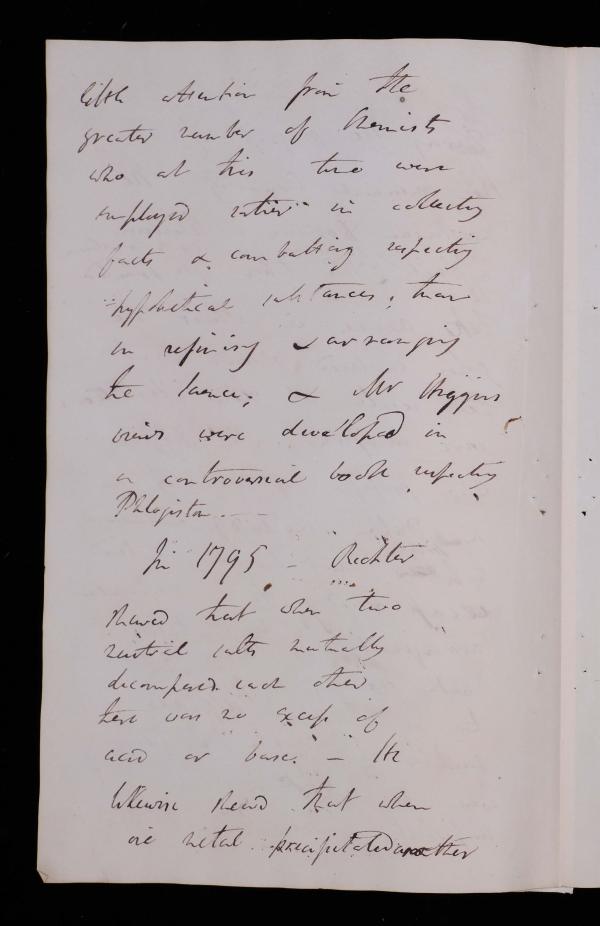 little attention from the
greater number of Chemists
who at this time were
employed rather in collecting
facts & combatting respecting
hypothetical substances, than
in refining & arranging
the science; & Mr Higgins
views were developed in
a controversial book respecting
Phlogiston. —
In 1795 – Richter
shewed that when two
neutral salts mutually
decomposed each other
there was no excess of
acid or base. – He
likewise shewd that when
one metal precipitated another